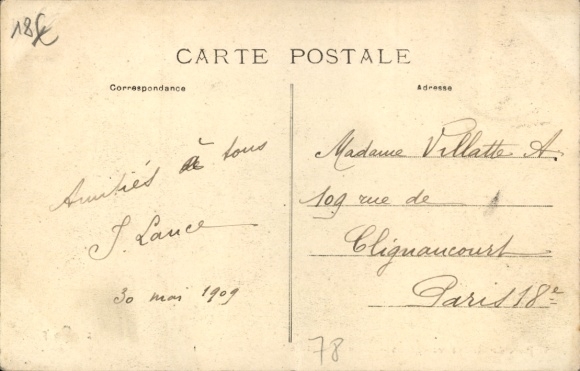 18e
CARTE POSTALE
Correspondance
Adresse
Amitiés à tous
J. Lance
30 mai 1909
Madame Villatte A.
109 rue de
Clignancourt
Paris 18e
78